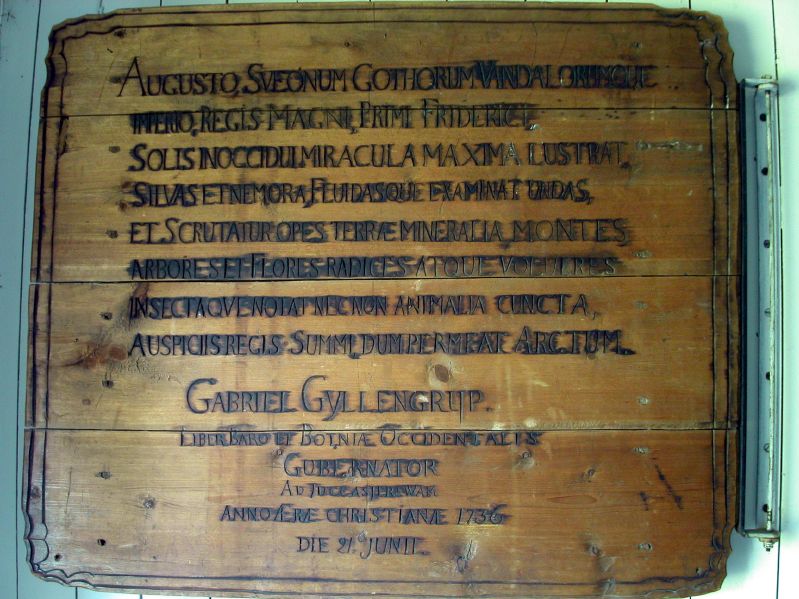 AUGUSTO, SVEONUM GOTHORUM VANDALORUMQUE
IMPERIO, REGIS MAGNI, PRIMI FRIDERICI,
SOLIS INOCCIDUI, MIRACULA MAXIMA LUSTRAT,
SILVAS ET NEMORA, FLUIDASQUE EXAMINAT UNDAS,
ET SCRUTATUR OPES TERRÆ MINERALIA MONTES
ARBORES ET FLORES RADICES ATQUE VOLUCRES
INSECTAQVE NOTAT NEC NON ANIMALIA CUNCTA,
AUSPICIIS REGIS SUMMI, DUM PERMEAT ARCTUM.
GABRIEL GYLLENGRIJP.
LIBER BARO ET BOTNIÆ OCCIDENTALIS
GUBERNATOR
AD JUCCASJERFWAM
ANNO ÆRÆ CHRISTIANÆ 1736
DIE 21. JUNII.